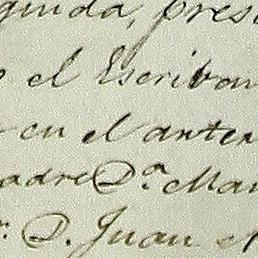 segunda, pres
el Escriban
en el anter
adre D.ª Mar
D. Juan